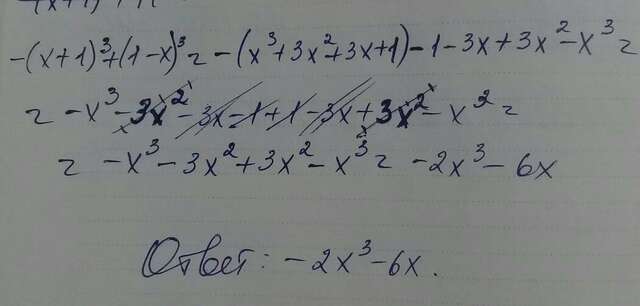 -(x+1)³+(1-x)³ = -(x³+3x²+3x+1)-1-3x+3x²-x³ =
= -x³-3x²-3x-1+1-3x+3x²-x² =
= -x³-3x²+3x²-x³ = -2x³-6x
Ответ: -2x³-6x.